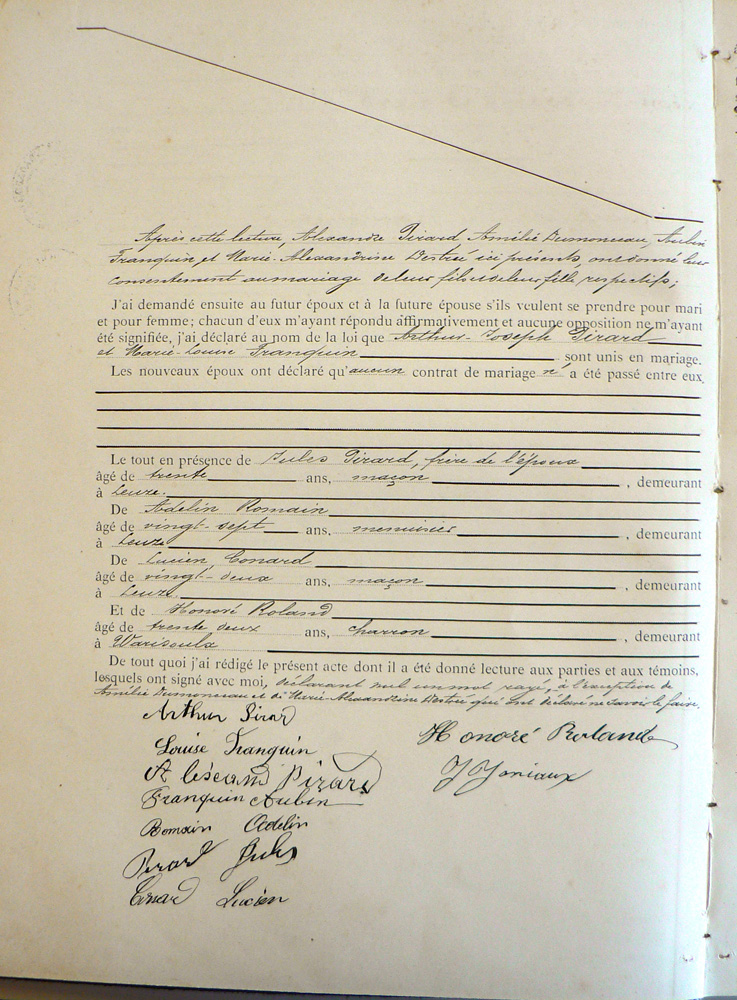 Après cette lecture, Alexandre Pirard, Amélie Dumonceau, Aubin
Franquin, et Marie-Alexandrine Destrée ici présents, ont donné leur
consentement au mariage de leur fils et de leur fille respectifs;
J'ai demandé ensuite au futur époux et à la future épouse s'ils veulent se prendre pour mari
et pour femme; chacun d'eux m'ayant répondu affirmativement et aucune opposition ne m'ayant
été signifiée, j'ai déclaré au nom de la loi que Arthur-Joseph Pirard
et Marie-Louise Franquin sont unis en mariage.
Les nouveaux époux ont déclaré qu'aucun contrat de mariage n'a été passé entre eux
Le tout en présence de Jules Pirard, frère de l'époux
âgé de trente ans, maçon, demeurant
à Leuze.
De Adelin Romain
âgé de vingt-sept ans, menuisier, demeurant
à Leuze
De Lucien Conard
âgé de vingt-deux ans, maçon, demeurant
à Leuze
Et de Honoré Roland
âgé de trente deux ans, charron, demeurant
à Warisoulx
De tout quoi j'ai rédigé le présent acte dont il a été donné lecture aux parties et aux témoins,
lesquels ont signé avec moi, déclarant nul un mot rayé, à l'exception de
Amélie Dumonceau et de Marie-Alexandrine Destrée qui ont déclaré ne savoir le faire.
Arthur Pirard
Louise Franquin
Pirard
Franquin Aubin
Romain Adelin
Pirard Jules
Conard Lucien
Honoré Roland
J Joniaux